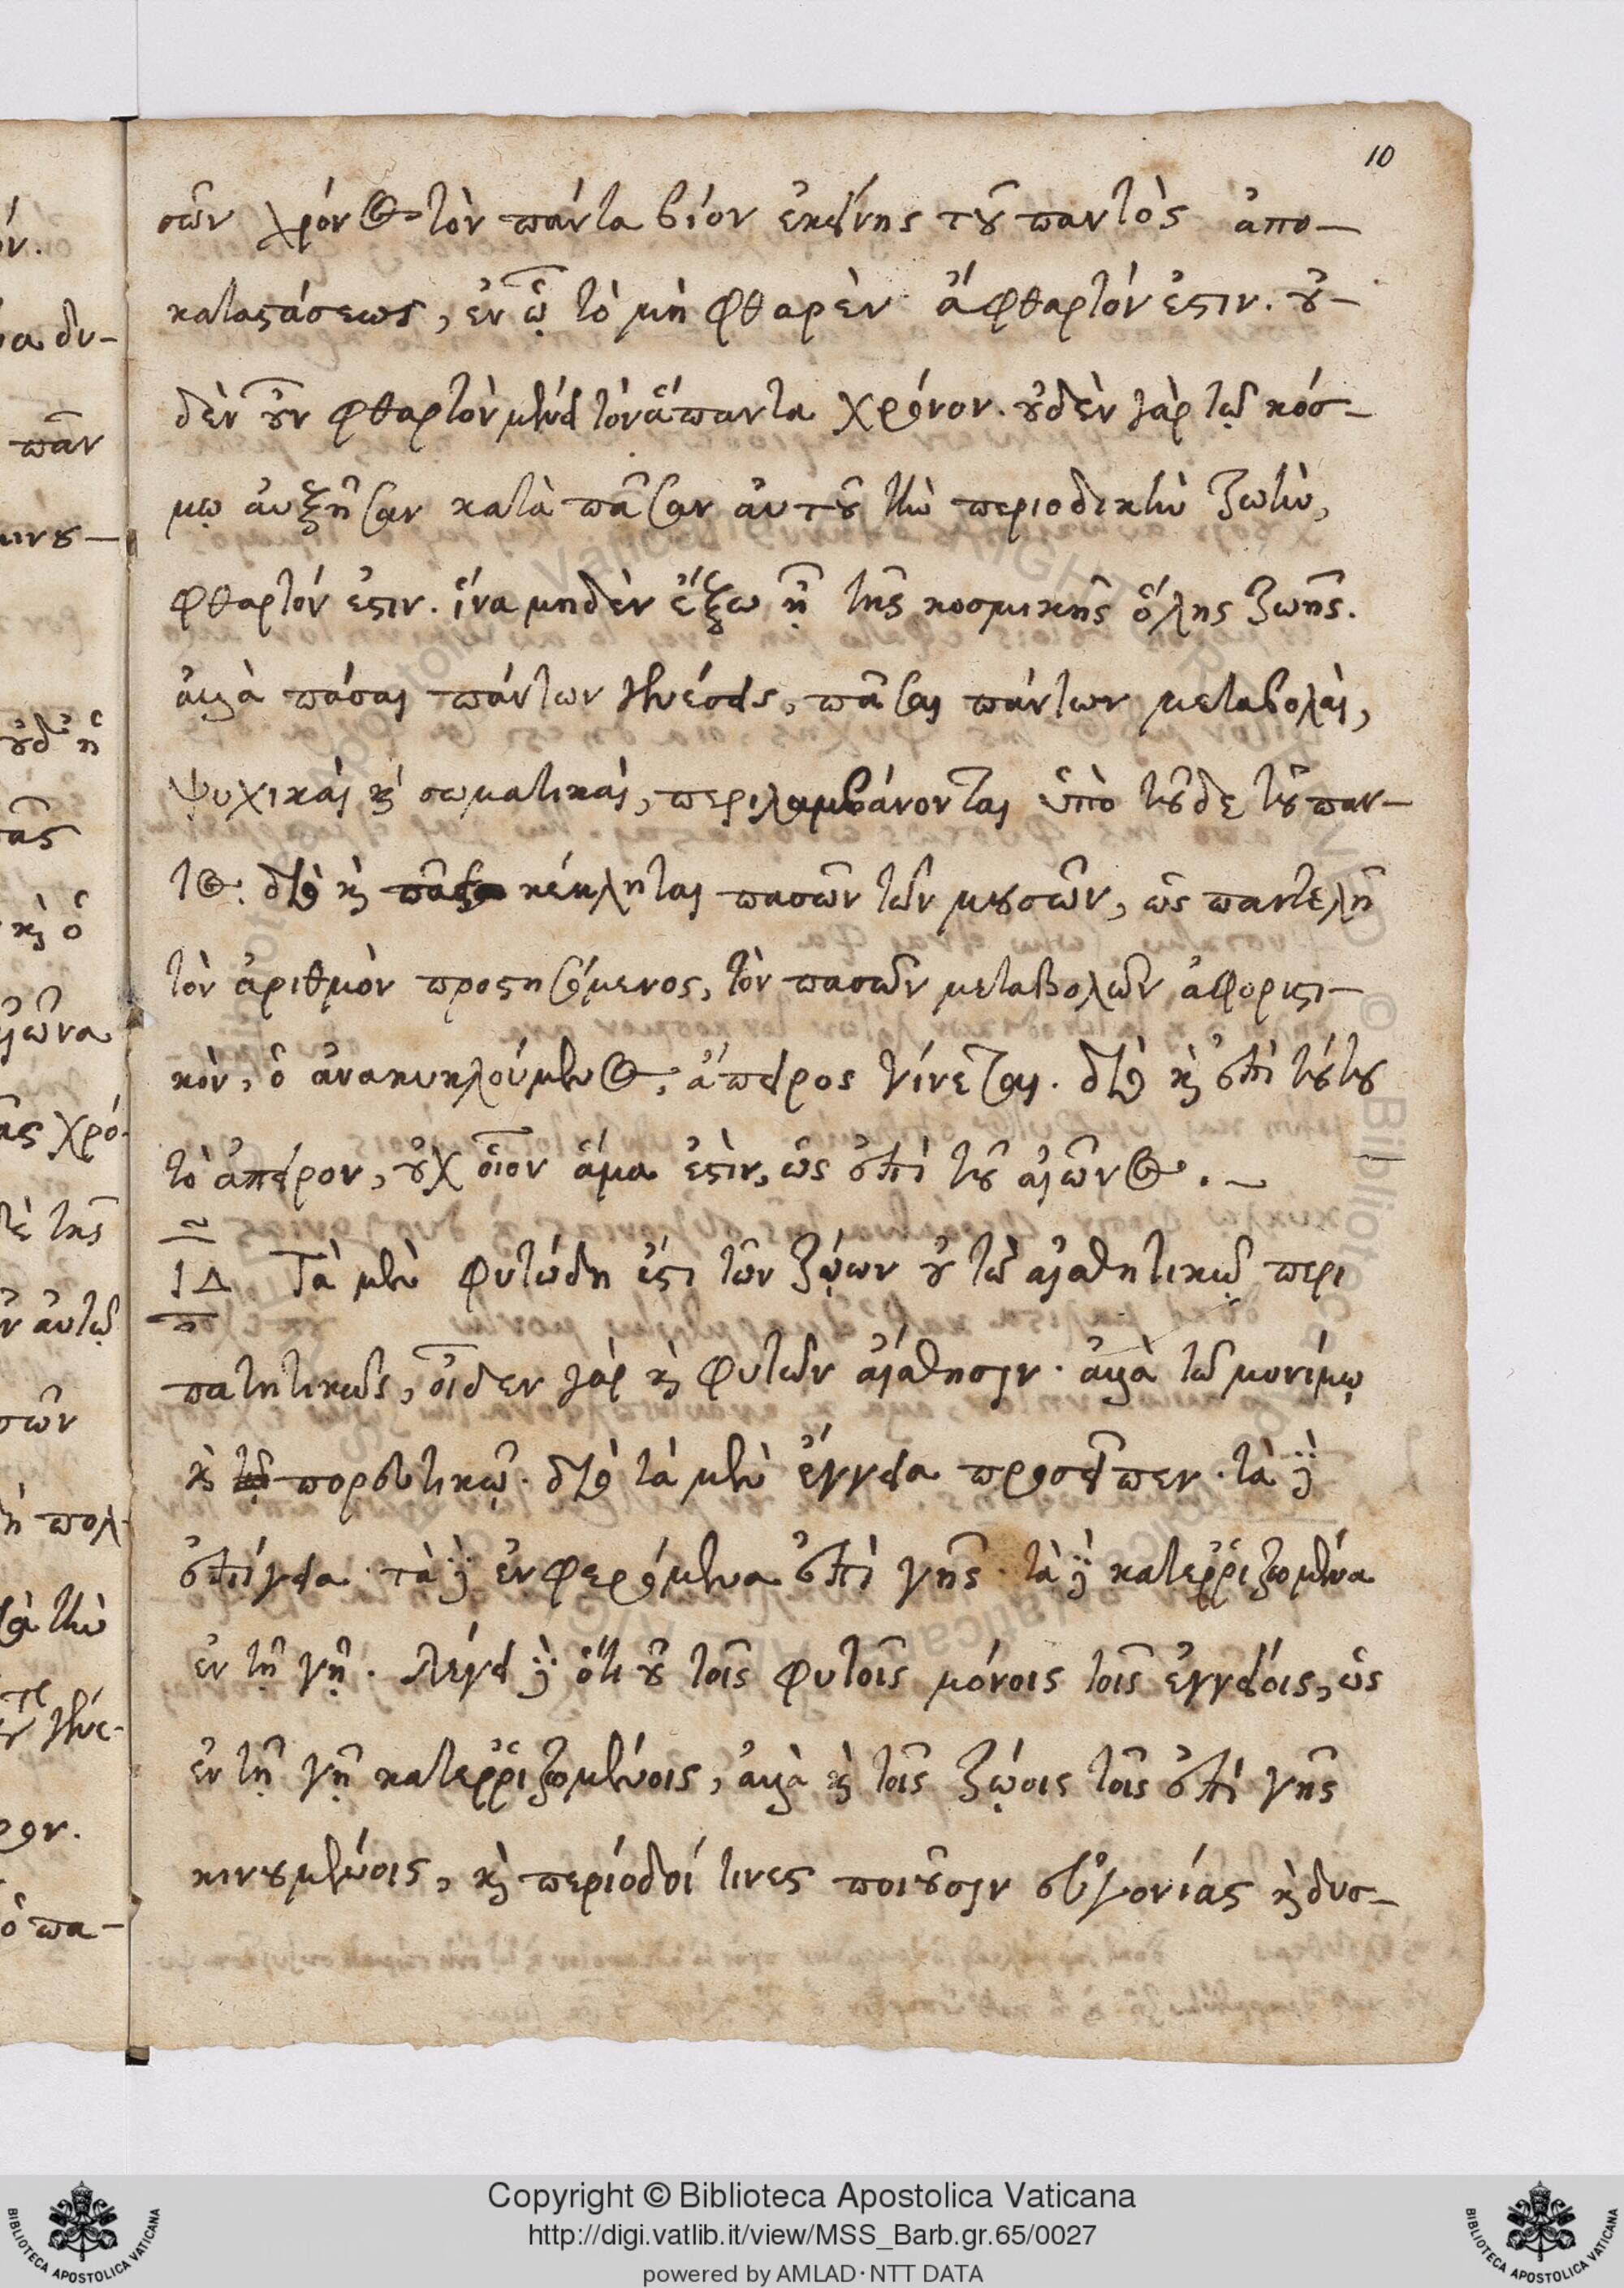 10
σῶν χρόνος τὸν πάντα βίον ἐκείνης τοῦ παντὸς ἀπο-
καταστάσεως, ἐν ᾧ τὸ μὴ φθαρὲν ἄφθαρτόν ἐστιν. οὐ-
δὲν οὖν φθαρτὸν μένει τὸν ἅπαντα χρόνον. οὐδὲν γὰρ τῷ κόσ-
μῳ αὐξῆσαν κατὰ πᾶσαν αὐτοῦ τὴν περιοδικὴν ζωὴν,
φθαρτόν ἐστιν. ἵνα μηδὲν ἔξω ᾖ τῆς κοσμικῆς ὅλης ζωῆς.
ἀλλὰ πάσαι πάντων γενέσεις, πᾶσαι πάντων μεταβολαὶ,
ψυχικαὶ καὶ σωματικαὶ, περιλαμβάνονται ὑπὸ τοῦδε τοῦ παν-
τός. διὸ καὶ κέκληται πασῶν τῶν μουσῶν, ὡς παντελῆ
τὸν ἀριθμὸν προστησάμενος, τὸν πασῶν μεταβολῶν ἀφοριστι-
κὸν, ὃ ἀνακυκλούμενος, ἄπειρος γίνεται. διὸ καὶ ἐπὶ τούτου
τὸ ἄπειρον, οὐχ οἷον ἅμα ἐστὶν, ὡς ἐπὶ τοῦ αἰῶνος.
ΙΔ Τὰ μὲν φυτώδη ἐστι τῶν ζῴων οὐ τῷ αἰσθητικῷ περι
πατητικῶς, οἶδεν γὰρ καὶ φυτῶν αἴσθησιν. ἀλλὰ τῷ μονίμῳ
καὶ πορευτικῷ. διὸ τὰ μὲν ἔγγεια προσεῖπεν. τὰ δὲ
ἐπίγεια. τὰ δὲ ἐνφερόμενα ἐπὶ γῆς. τὰ δὲ κατεῤῥιζομένα
ἐν τῇ γῇ. λέγει δὲ ὅτι οὐ τοῖς φυτοῖς μόνοις τοῖς ἐγγείοις, ὡς
ἐν τῇ γῇ κατεῤῥιζομένοις, ἀλλὰ καὶ τοῖς ζῴοις τοῖς ἐπὶ γῆς
κινουμένοις, καὶ περίοδοί τινες ποιοῦσιν εὐγονίας καὶ δυσ-
Copyright © Biblioteca Apostolica Vaticana
http://digi.vatlib.it/view/MSS_Barb.gr.65/0027
powered by AMLAD·NTT DATA
BIBLIOTECA APOSTOLICA VATICANA
BIBLIOTECA APOSTOLICA VATICANA